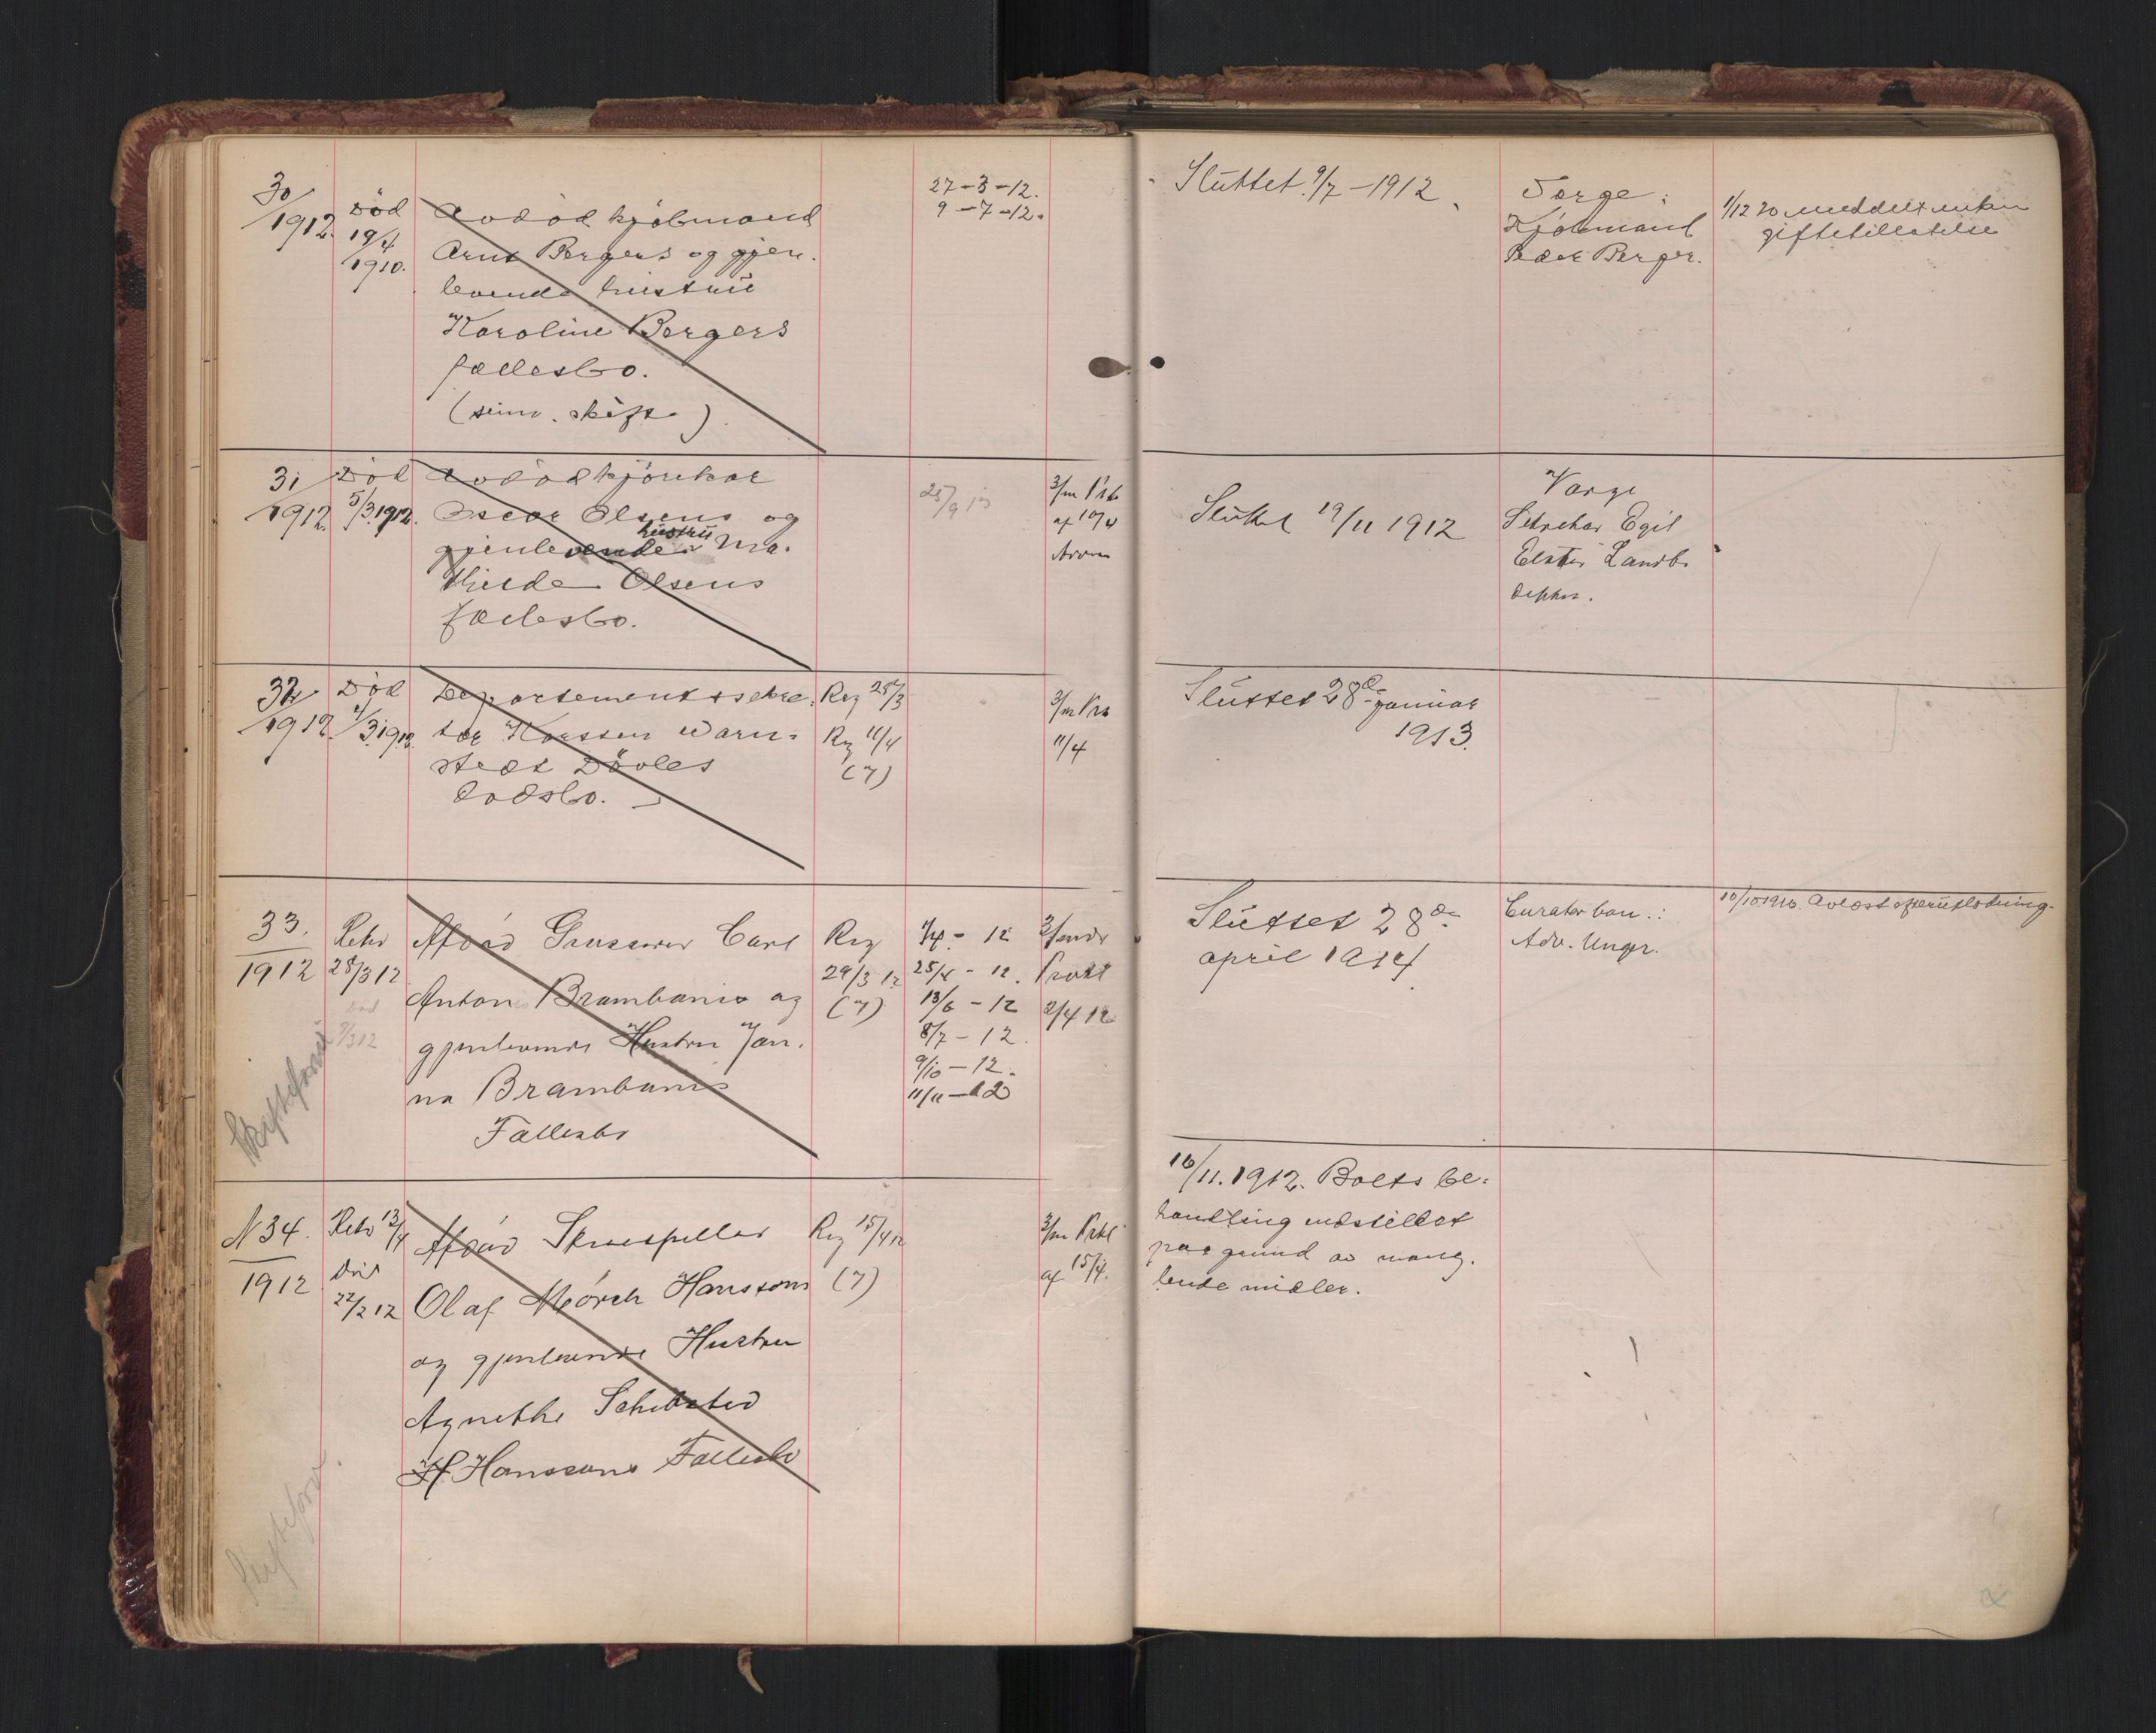 30/1912.
Død
19/4
1910.
Avdød kjøbmand
Arnt Bergers og gjen-
levende hustru
Karoline Bergers
fællesbo.
(sem. skifte)
27-3-12.
9-7-12.
Sluttet 9/7-1912.
Verge:
Kjøbmand
Peder Berger.
1/12 20 meddelt enken
giftetillatelse
31/1912.
Død
5/3 1912.
Avdød kjørekar
Oscar Olsens og
gjenlevende hustru Ma-
thilde Olsens
fællesbo.
25/9 13
3/m Prk
af 10/4
Sluttet 19/11 1912
Verge
Sekretær Egil
Elster Landb.
depter.
32/1912
Død
1/3 1912.
Departementssekre-
tær Karsten Warn-
stedt Døvles
dødsbo.
Reg 25/3
Reg 11/4
(7)
3/m Prk
11/4
Sluttet 28de januar
1913.
33.
1912
Rekv
28/3 12
død
9/3 12
Skifteforv
Afdød Grosserer Carl
Anton Brambanis og
gjenlevende Hustru Jan-
na Brambanis
Fællesbo
Reg
29/3 12
(7)
1/4 - 12
25/4 - 12.
13/6 - 12
8/7 - 12.
9/10 - 12.
11/11 - 12
3/mndr
Prokl
2/4 12
Sluttet 28de
april 1914.
Curator bon.:
Adv. Unger.
10/10 1910. Avløst efter utlodning.
N 34.
1912
Rekv 13/4
Død
22/2 12
Skifteforv.
Afdød Skuespiller
Olaf Mørch Hanssons
og gjenlevende Hustru
Agnethe Schibsted
H. Hanssons Fællesbo
Reg 15/4 12
(7)
3/m Prkl
af 15/4.
16/11. 1912. Boets be-
handling indstillet
paa grund av mang-
lende midler.